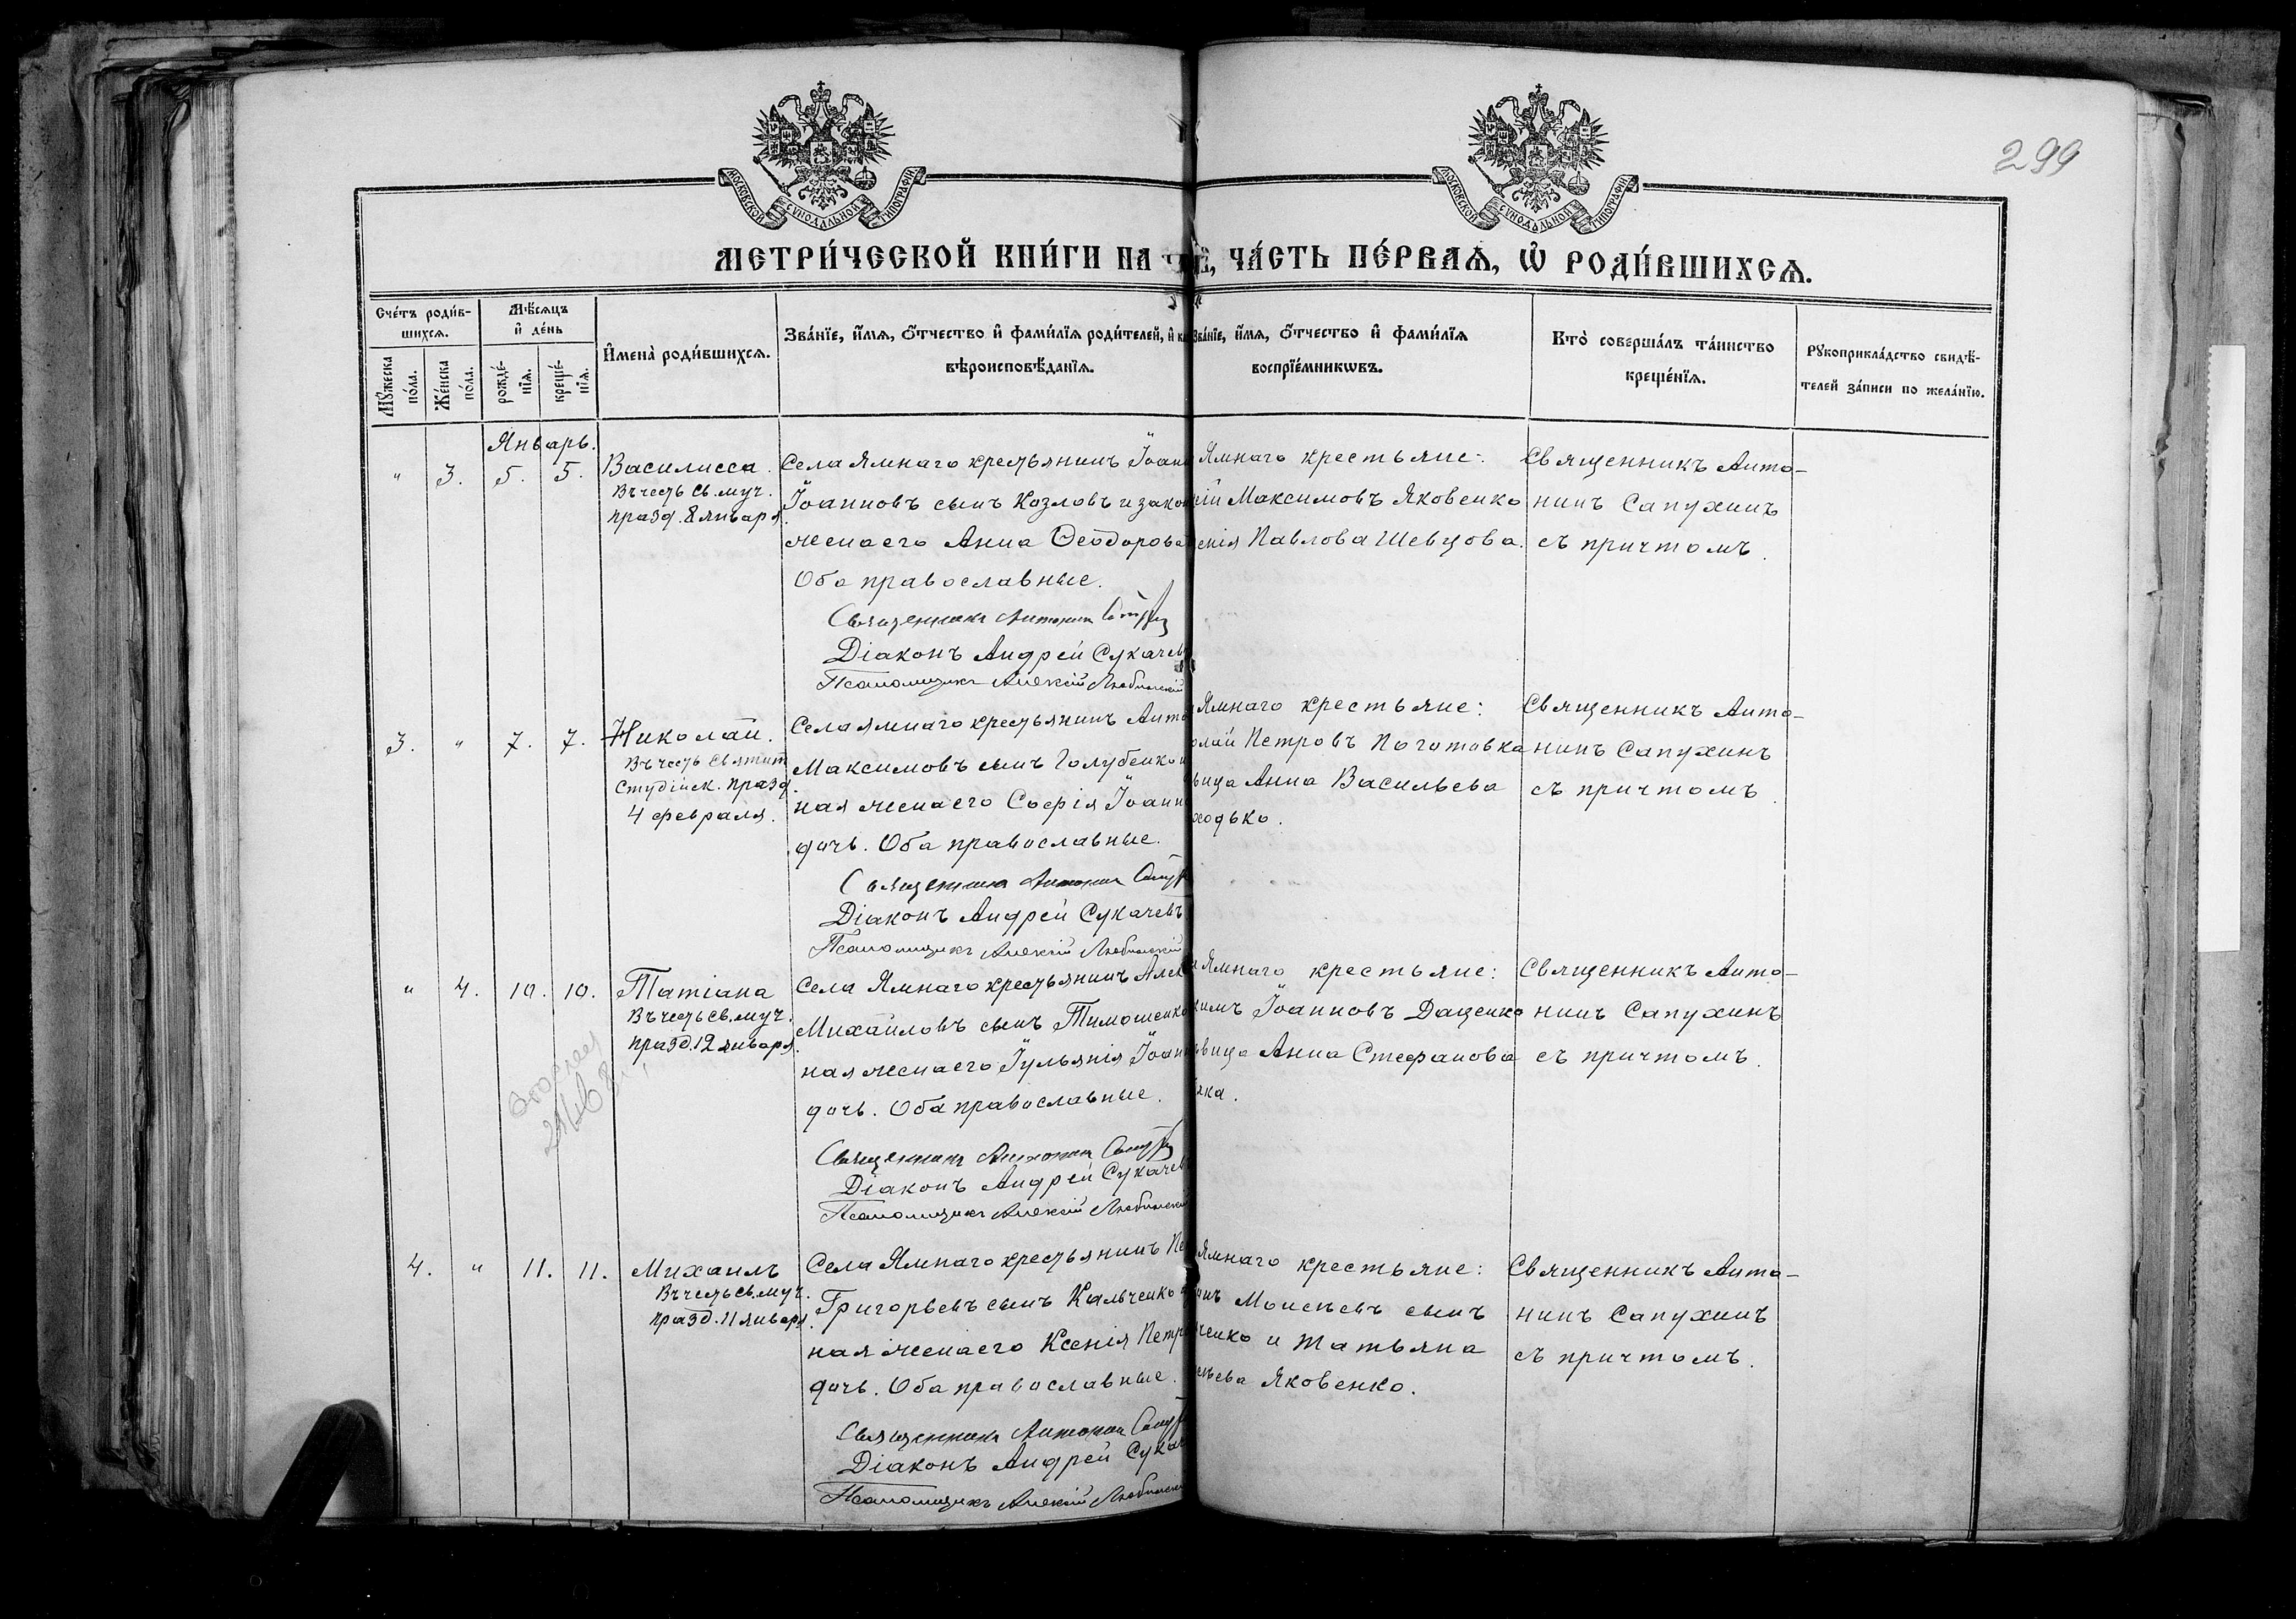 299
МОСКОВСКОЙ СѴНОДАЛЬНОЙ ТИПОГРАФІИ
МОСКОВСКОЙ СѴНОДАЛЬНОЙ ТИПОГРАФІИ
МЕТРИ́ЧЕСКОЙ КНИ́ГИ НА
ЧА́СТЬ ПЕ́РВАѦ, Ѽ РОДИ́ВШИХСѦ.
Сче́тъ роди́в-
шихсѧ.
Мꙋ́жеска
по́ла.
Же́нска
по́ла.
Мѣ́сѧцъ
и҆ де́нь
рожде́-
нїѧ.
креще́-
нїѧ.
И҆мена̀ роди́вшихсѧ.
Зва́нїе, и҆́мѧ, ѻ҆́тчество и҆ фами́лїѧ роди́телей, и҆
вѣроисповѣ́данїѧ.
Зва́нїе, и҆́мѧ, ѻ҆́тчество и҆ фами́лїѧ
воспрїе́мникѡвъ.
Кто̀ соверша́лъ та́инство
креще́нїѧ.
Рꙋкоприкла́дство свидѣ́-
телей за́писи по жела́нїю.
Январь.
" 3. 5. 5.
Василисса.
Въ честь св. муч.
празд. 8 января.
Села Ямнаго крестьянинъ Іоан
Іоанновъ сынъ Козловъ и закон
жена его Анна Ѳеодорова
Оба православные.
Священникъ Антонин
Діаконъ Андрей Сукачев
Псаломщикъ Алексій Любимскій
Ямнаго крестьяне:
сій Максимовъ Яковенко
енія Павлова Шевцова.
Священникъ Анто-
нинъ Сапухинъ
съ причтомъ.
3. " 7. 7.
Николай.
Въ честь Святит
Студійск. празд.
4 февраля.
Села Ямнаго крестьянинъ Анто
Максимовъ сынъ Голубенко и
ная жена его Софія Іоанн
дочь. Оба православные.
Священникъ Антонин
Діаконъ Андрей Сукачевъ
Псаломщикъ Алексій Любимскій
Ямнаго крестьяне:
олай Петровъ Поготовка
вица Анна Васильева
ходько.
Священникъ Анто-
нинъ Сапухинъ
съ причтомъ.
" 4. 10. 10.
Татіана
Въ честь св. муч.
празд. 12 января.
Села Ямнаго крестьянинъ Алек
Михайловъ сынъ Тимошенко
ная жена его Іульянія Іоан
дочь. Оба православные.
Священникъ Антонин
Діаконъ Андрей Сукачев
Псаломщикъ Алексій Любимскій
Ямнаго крестьяне:
кимъ Іоанновъ Даценко
вица Анна Стефанова
ка.
Священникъ Анто-
нинъ Сапухинъ
съ причтомъ.
4. " 11. 11.
Михаилъ
Въ честь св. муч.
празд. 11 января.
Села Ямнаго крестьянинъ
Григорьевъ сынъ Кальченко и
ная жена его Ксенія Петр
дочь. Оба православные.
Священникъ Антонин
Діаконъ Андрей Сукач
Псаломщикъ Алексій Любимск
Ямнаго крестьяне:
инъ Моисѣевъ сынъ
ченко и Татьяна
сѣева Яковенко.
Священникъ Анто-
нинъ Сапухинъ
съ причтомъ.